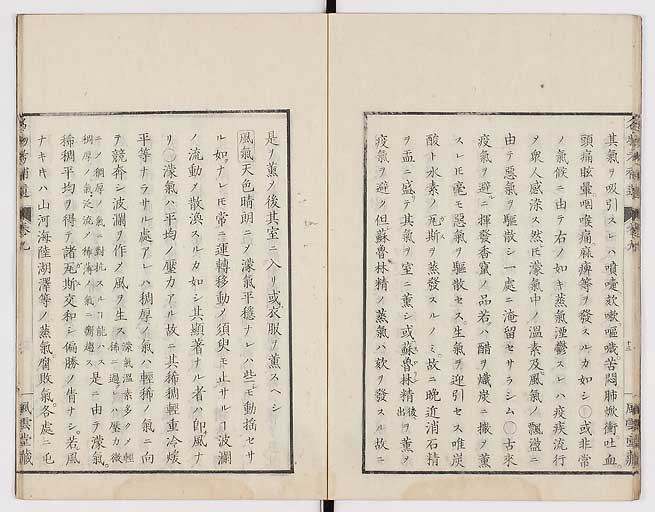 其氣ヲ吸引スレハ噴嚏欬嗽嘔噦苦悶肺焮衝吐血
頭痛眩暈咽喉痛麻痺等ヲ發スルカ如シ○或非常
ノ氣候ニ由テ右ノ如キ蒸氣湮鬱スレハ疫疾流行
ヲ衆人感染ス然𪜈濛氣中ノ溫素及風氣ノ飄溫ニ
由テ惡氣ヲ驅散シ一處ニ淹留セサラシム○古來
疫氣ヲ避ニ揮發香竄ノ品若ハ醋ヲ熾炭ニ撒ヲ薰
スレ𪜈毫モ惡氣ヲ驅散セス生氣ヲ迎引セス唯炭
酸ト水素ノ瓦斯ヲ蒸發スルノミ故ニ晩近消石精
ヲ盂ニ盛テ其氣ヲ室ニ薰シ或蘇魯林精後出ヲ薰ヲ
疫氣ヲ避ク但蘇魯林精ノ蒸氣ハ欬ヲ發スル故ニ
是ノ薰ノ後其室ニ入リ或衣服ヲ薰スヘシ
風氣天色晴朗ニノ濛氣平穩ナレハ些モ動搖セサ
ル如ナレ𪜈常ニ運轉移動ノ須臾モ止サルー波瀾
ノ流動ノ散渙スルカ如シ其顯著ナル者ハ卽風ナ
リ○濛氣ハ平均ノ壓力アル故ニ其稀稠輕重冷煖
平等ナラサル處アレハ稠厚ノ氣ハ輕稀ノ氣ニ向
テ競奔シ波瀾ヲ作ノ風ヲ生ス濛氣溫素多クノ輕稀ニ過レハ壓力微
ニノ稠厚ノ氣ニ對抗スルー能ハス是ニ由テ濛氣
稠厚ノ氣泛流ノ稀薄ノ氣ニ衝趨ス
稀稠平均ヲ得テ諸瓦斯交和シ偏勝ノ眚ナシ若風
ナキ𪜈ハ山河海陸湖澤等ノ蒸氣腐敗氣各處ニ屯
風雲堂藏
風雲堂藏